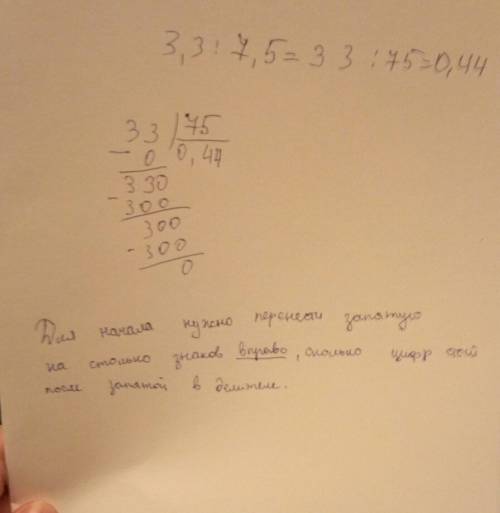 3,3 : 7,5 = 33 : 75 = 0,44
33 | 75
- 0 0,44
330
- 300
300
- 300
0
Для начала нужно перенести запятую
на столько знаков вправо, сколько цифр стоит
после запятой в делителе.